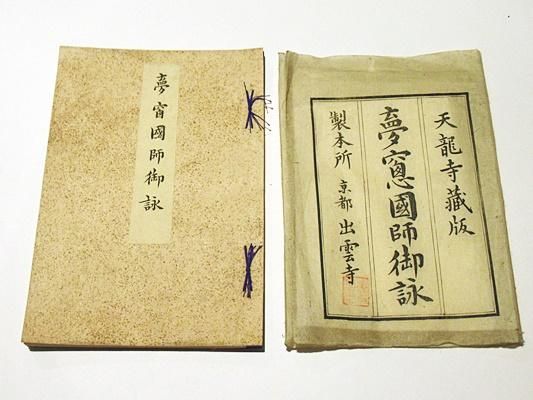 夢窓國師御詠
天龍寺藏版
夢窓國師御詠
製本所 京都 出雲寺